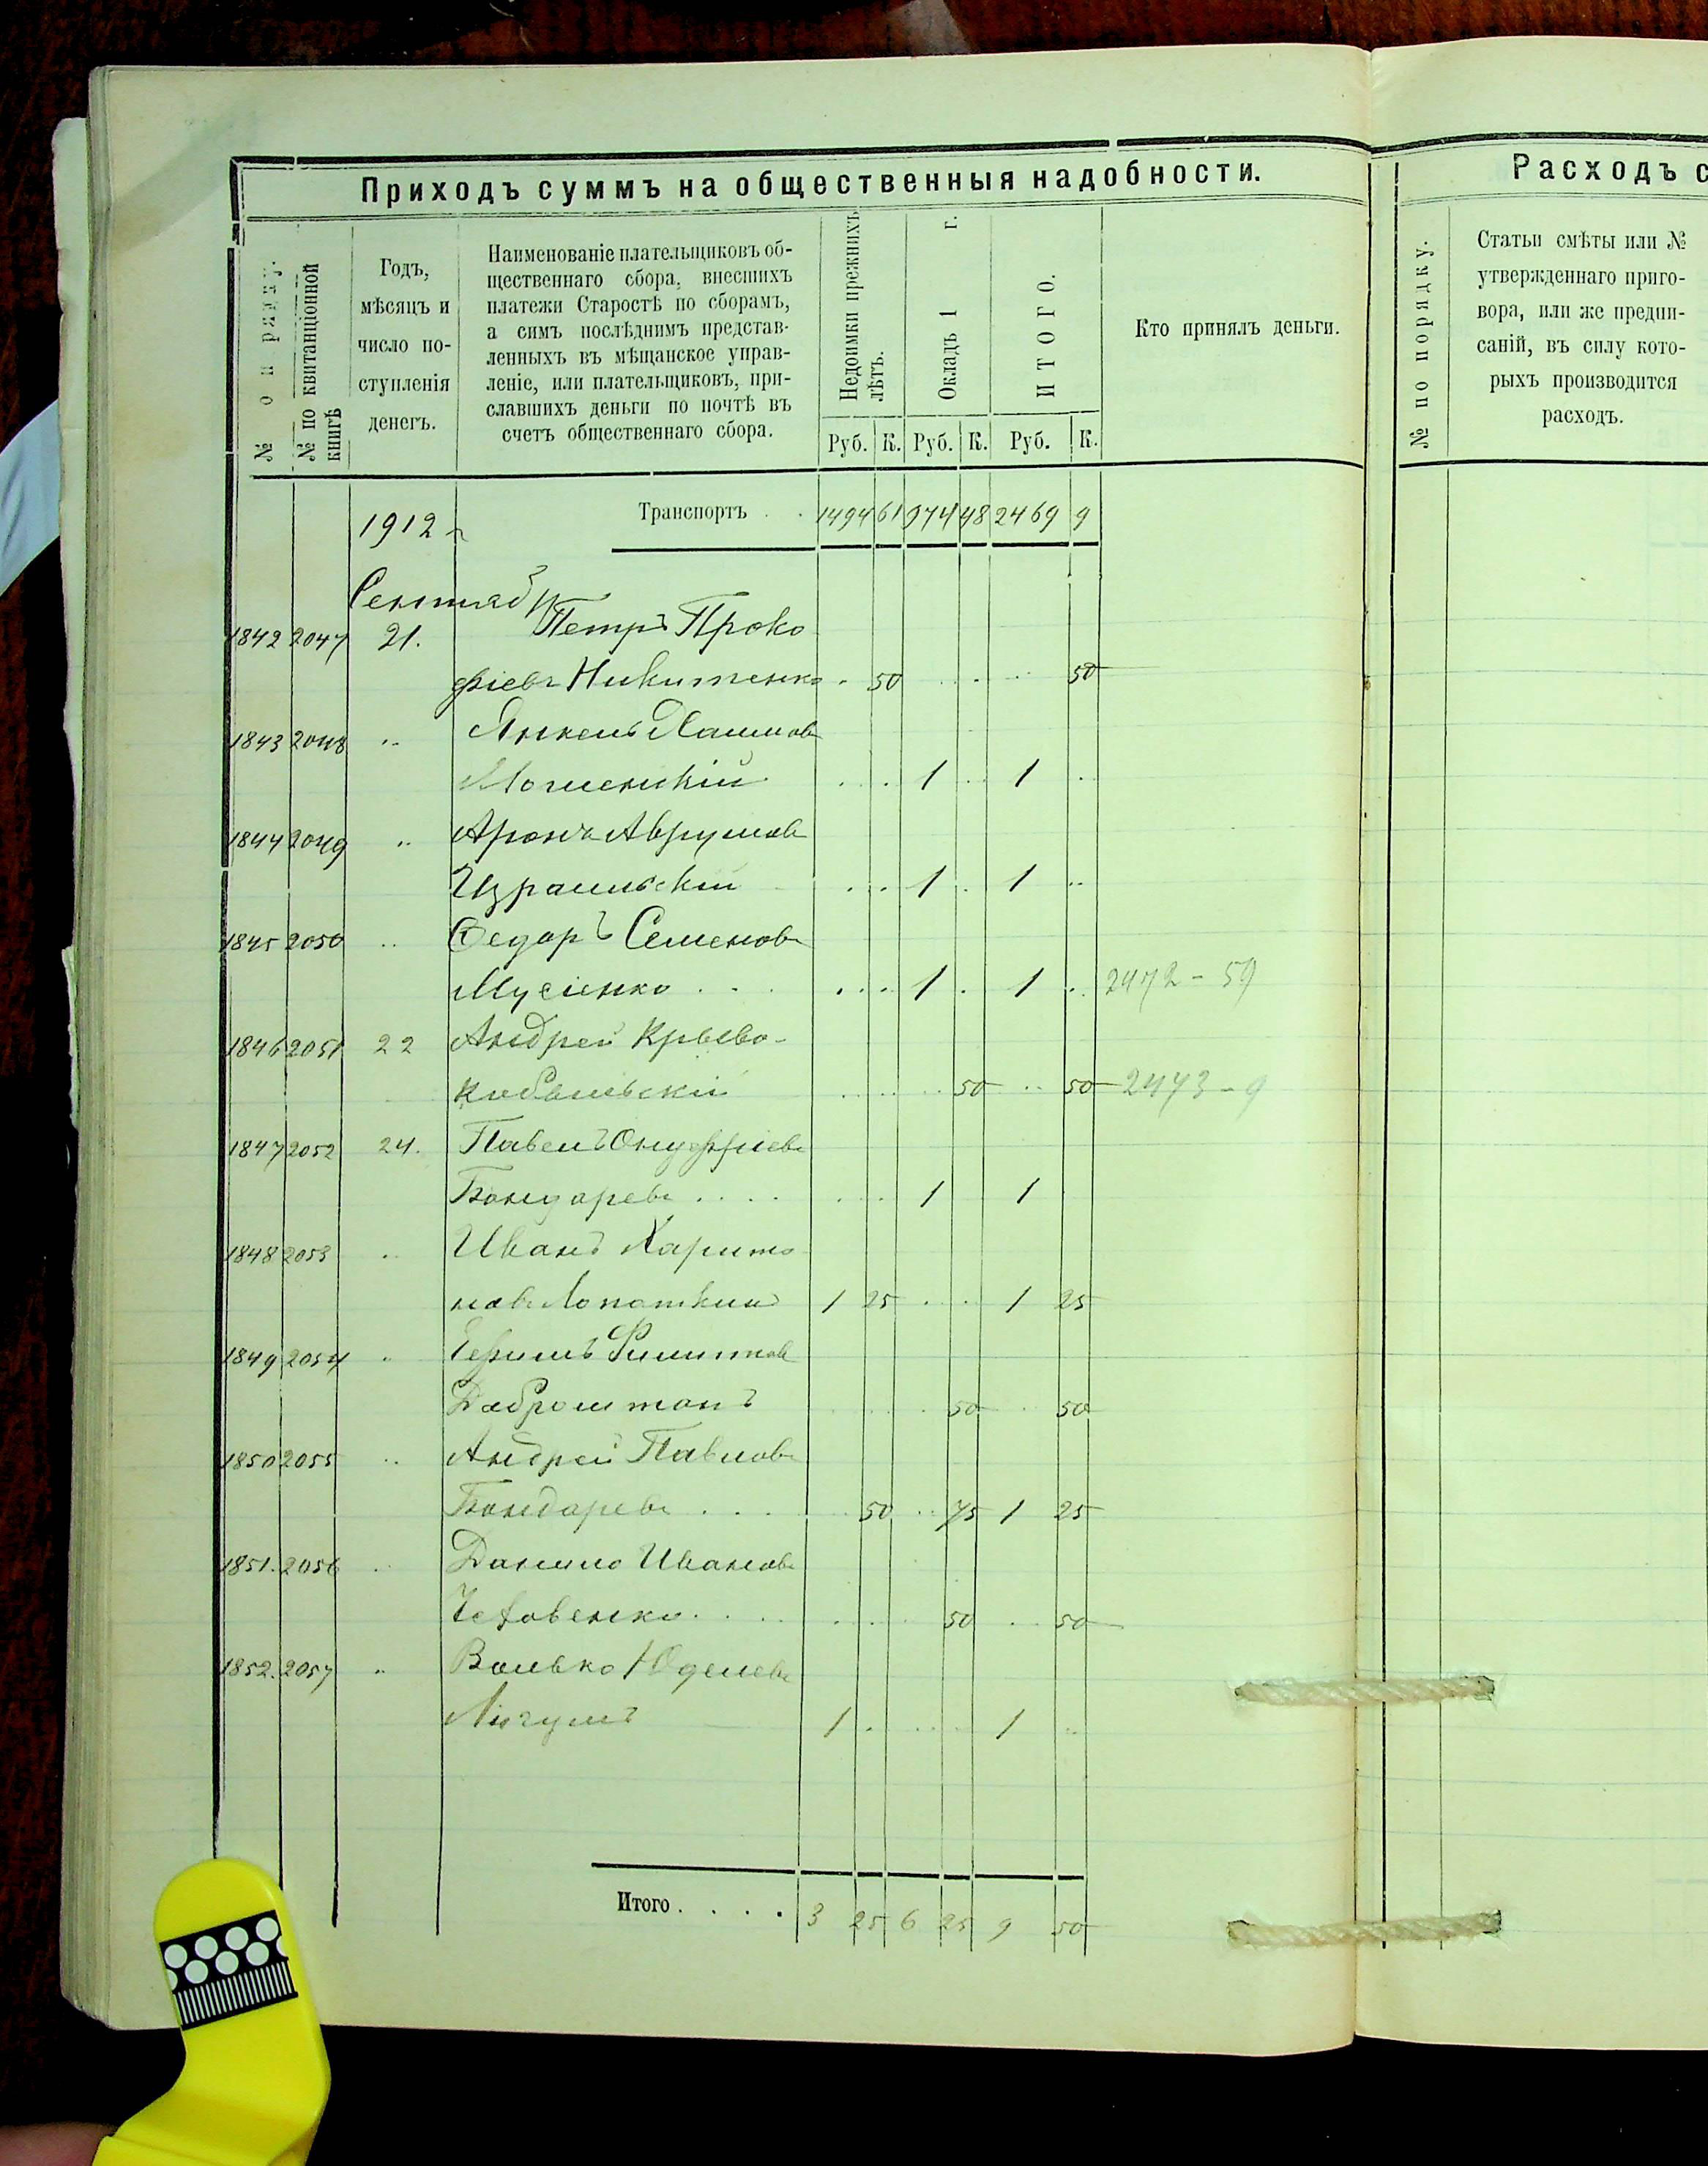 Приходъ суммъ на общественныя надобности.
№ по квитанціонной книгѣ
Годъ,
мѣсяцъ и
число по-
ступленія
денегъ.
Наименованіе плательщиковъ об-
щественнаго сбора, внесшихъ
платежи Старостѣ по сборамъ,
а симъ послѣднимъ представ-
ленныхъ въ мѣщанское управ-
леніе, или плательщиковъ, при-
славшихъ деньги по почтѣ въ
счетъ общественнаго сбора.
Недоимки прежнихъ лѣтъ.
Окладъ 1 г.
ИТОГО.
Кто принялъ деньги.
Руб. К. Руб. К. Руб. К.
1912 Транспортъ . . 1494 61 974 48 2469 9
1842 2047 21. Петръ Проко
фіевъ Никитенко 50 50
1843 2048 " Янкель
1 1
1844 2049 " Аронъ Аврумов
Израильскій 1 1
1845 2050 " Ѳедоръ Семенов
Мусіенко . . . 1 1 2472-59
1846 2051 22 Андрей Криво-
кобыльскій 50 50 2473-9
1847 2052 24. Павелъ Онуфріев
Бондарев . . . . 1 1
1848 2053 " Иванъ Харито
нов Лопаткин 1 25 1 25
1849 2054 "
50 50
1850 2055 " Андрей Павлов
Бондарев . . . 50 75 1 25
1851. 2056 " Данило Иванов
50 50
1852. 2057 " Волько Юделев
1 1
Итого . . . . 3 25 6 25 9 50
Расходъ с
№ по порядку.
Статьи смѣты или №
утвержденнаго приго-
вора, или же предпи-
саній, въ силу кото-
рыхъ производится
расходъ.